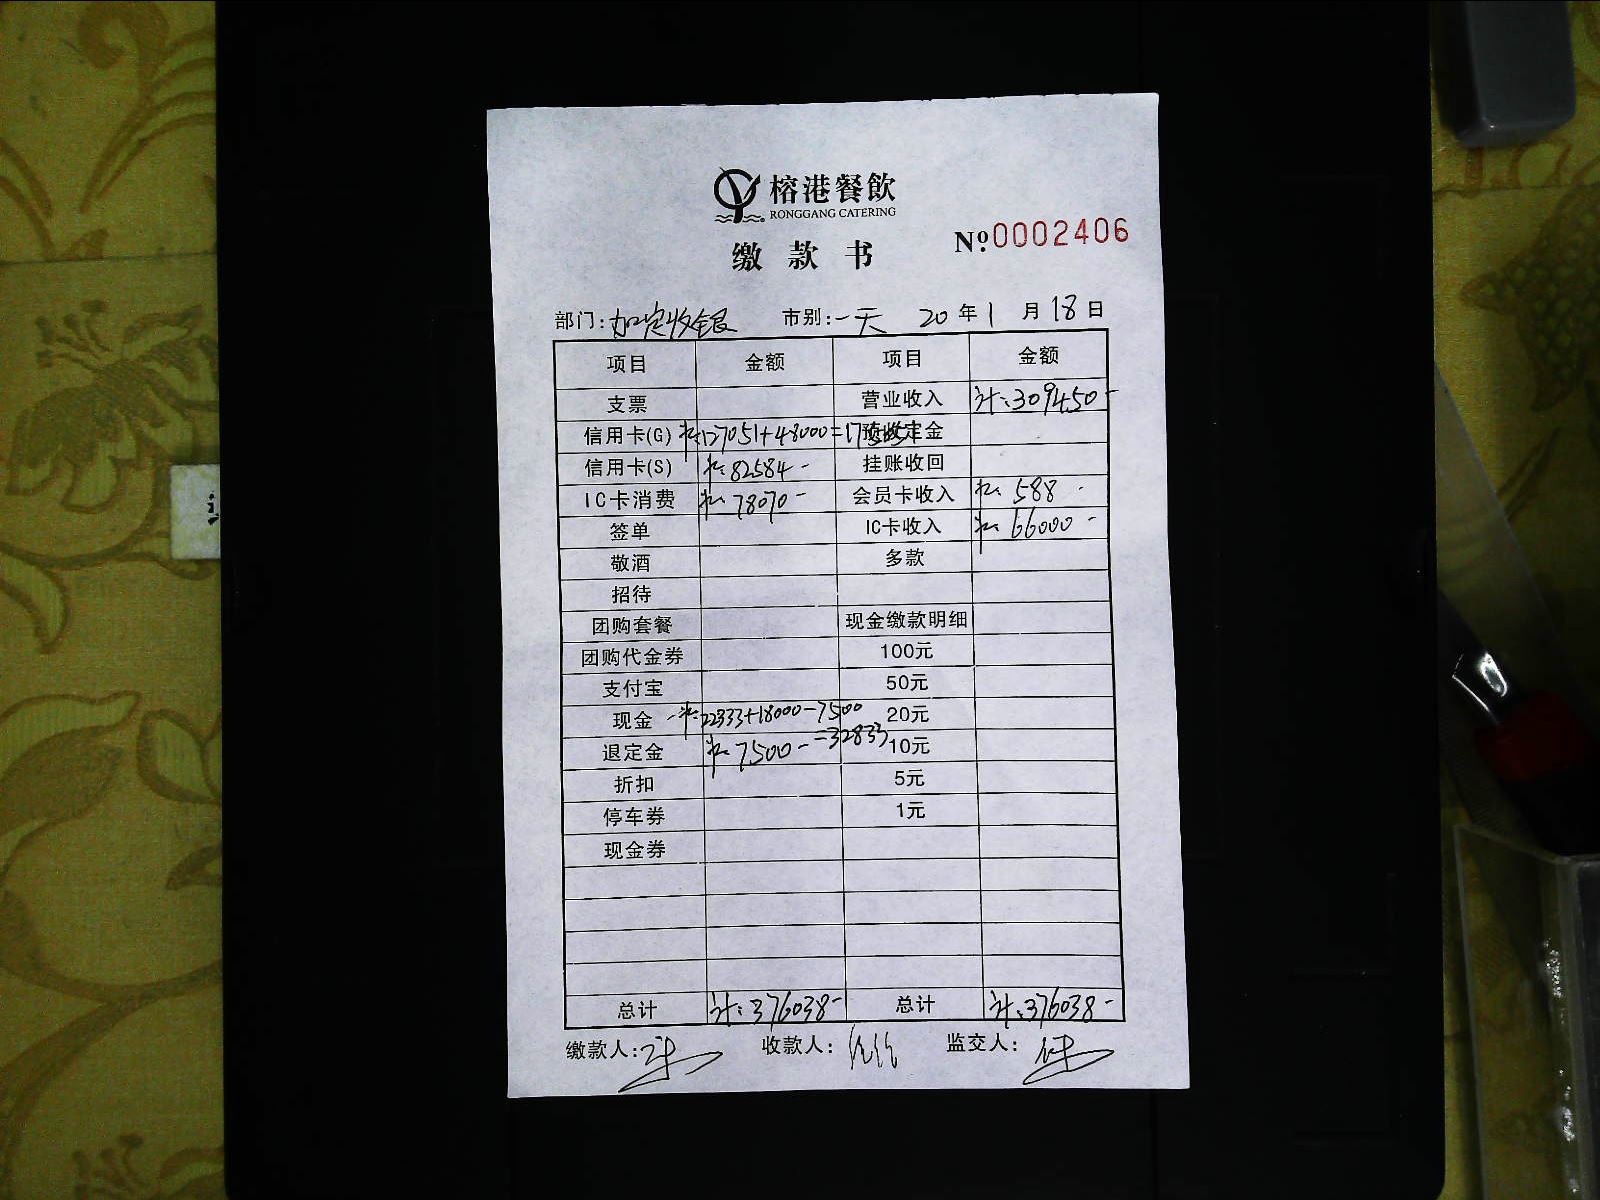 榕港餐飲
RONGGANG CATERING
缴款书
№0002406
部门:加定收银 市别:一天 20年1月18日
项目 金额 项目 金额
支票 营业收入 计:309450-
信用卡(G) 127051+48000=17 预收定金
信用卡(S) 82584- 挂账收回
IC卡消费 78070- 会员卡收入 588-
签单 IC卡收入 66000-
敬酒 多款
招待
团购套餐 现金缴款明细
团购代金券 100元
支付宝 50元
现金 22333+18000-7500 20元
=32833
退定金 7500- 10元
折扣 5元
停车券 1元
现金券
总计 计:376038- 总计 计:376038-
缴款人: 收款人: 监交人: